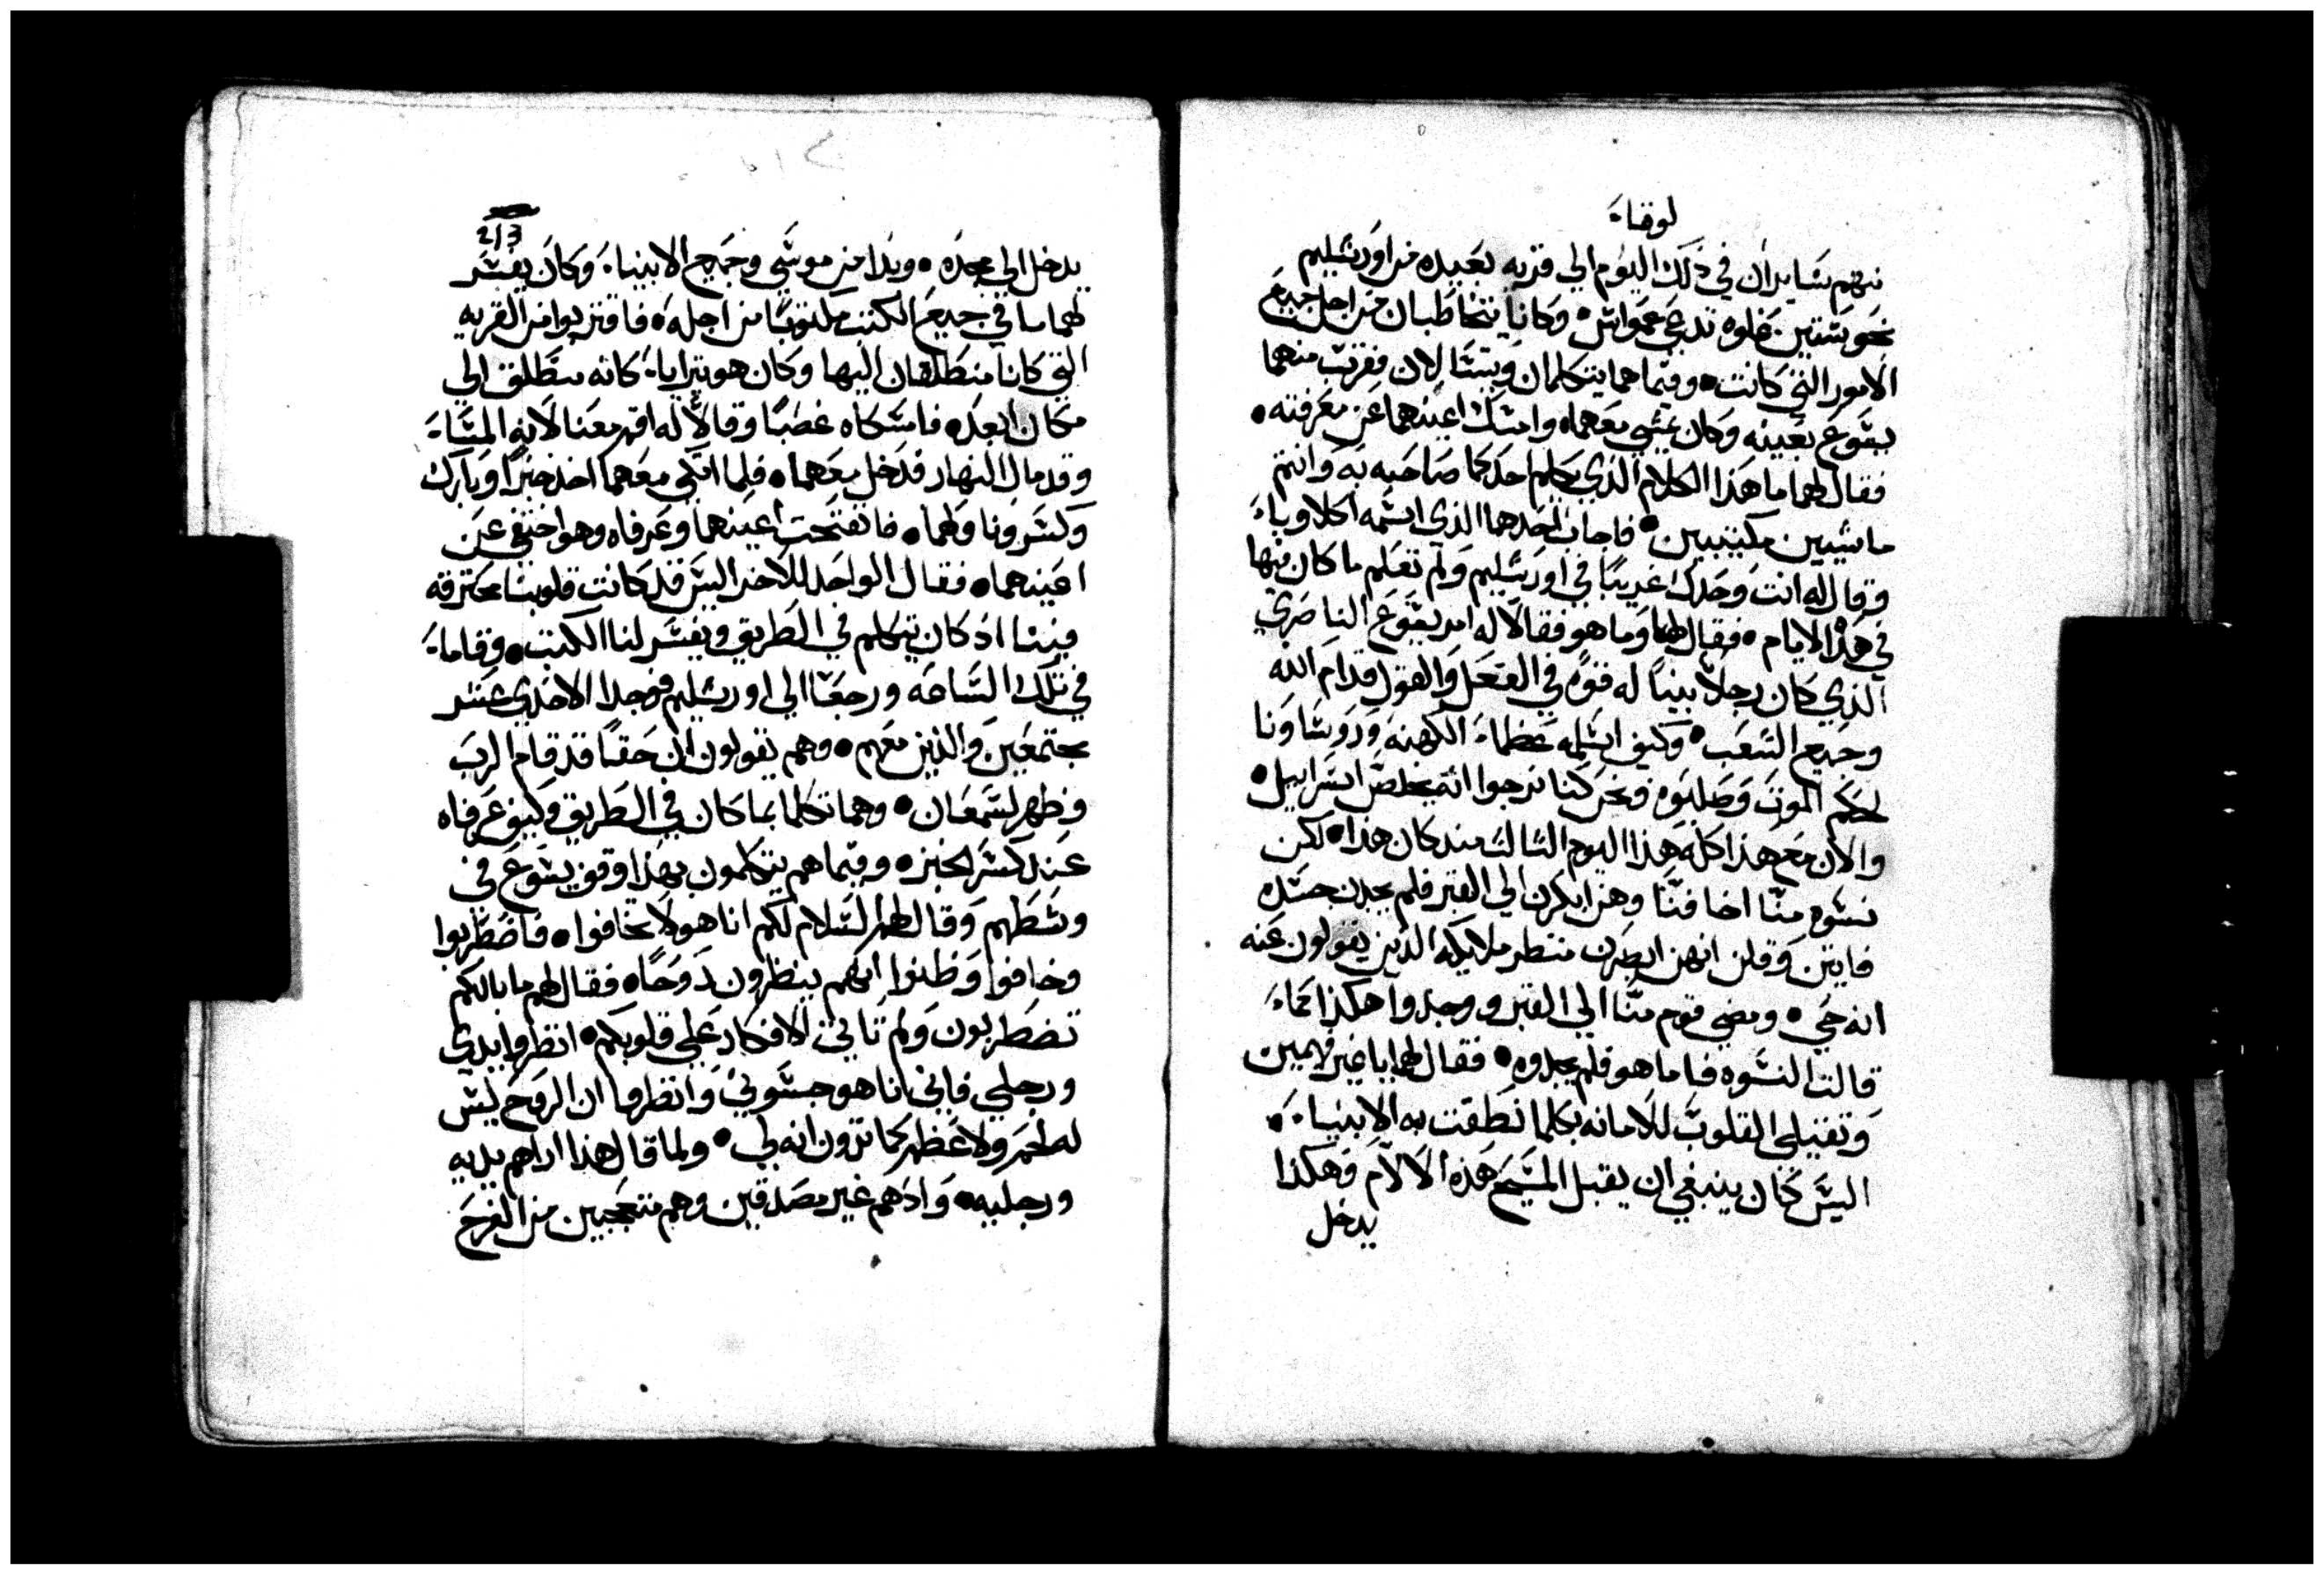 لوقاء
منهم سايران في ذلك اليوم الي قريه بعيده من اورشليم
نحو ستين غلوه تدعي عمواس وكانا يتخاطبان من اجل جميع
الامور التي كانت وفيما هما يتكلمان ويتسالان فقرب منهما
يسوع بعينه وكان يمشي معهما وامسك اعينهما عن معرفته
فقال لهما ما هذا الكلام الذي يكلم احدكما صاحبه به وانتم
ماشيين مكتيبين فاجاب احدهما الذي اسمه اكلاوباء
وقال له انت وحدك غريبا في اورشليم ولم تعلم ما كان فيها
في هذا الايام فقال لهما وما هو فقالا له امر يسوع الناصري
الذي كان رجلا نبيا له قوه في الفعل والقول قدام الله
وجميع الشعب وكيف اسلمه عظماء الكهنه وروساونا
لحكم الموت وصلبوه ونحن كنا نرجوا انه يخلص اسراييل
والان مع هذا كله هذا اليوم الثالث مند كان هذا لكن
نسوه منا اخافننا وهن ابكرن الي القبر فلم يجدن جسده
فاتين وقلن انهن ابصرن منظر ملايكه الذين يقولون عنه
انه حي ومضي قوم منا الي القبر ووجدوا هكذا كماء
قالت النسوه فاما هو فلم يجدوه فقال لهما يا غير فهمين
وتقيلي القلوب للامانه بكلما نطقت به الانبياء
اليس كان ينبغي ان يقبل المسيح هذه الالام وهكذا
يدخل
213
يدخل الي مجده وبدا من موسي وجميع الانبياء وكان يفسر
لهما ما في جميع الكتب مكتوبا من اجله فاقتربوا من القريه
التي كانا منطلقان اليها وكان هو يترايا كانه ينطلق الي
مكان ابعد فامسكاه غصبا وقالا له اقم معنا لانه المساء
وقد مال النهار فدخل معهما فلما اتكي معهما اخذ خبزا وبارك
وكسر وناولهما فانفتحت اعينهما وعرفاه وهو اختفي عن
اعينهما فقال الواحد للاخر اليس قد كانت قلوبنا محترقه
فينا اذ كان يتكلم في الطريق ويفسر لنا الكتب وقاماء
في تلك الساعه ورجعا الي اورشليم فوجدا الاحدي عشر
مجتمعين والذين معهم وهم يقولون ان حقا قد قام الرب
وظهر لسمعان وهما تكلما بما كان في الطريق وكيف عرفاه
عند كسر الخبز وفيما هم يتكلمون بهذا وقف يسوع في
وسطهم وقال لهم السلام لكم انا هو لا تخافوا فاضطربوا
وخافوا وظنوا انهم ينظرون روحا فقال لهم ما بالكم
تضطربون ولم تاتي الافكار علي قلوبكم انظروا يدي
ورجلي فاني انا هو جسوني وانظروا ان الروح ليس
له لحم ولا عظم كما ترون انه لي ولما قال هذا اراهم يديه
ورجليه واذ هم غير مصدقين وهم متعجبين من الفرح